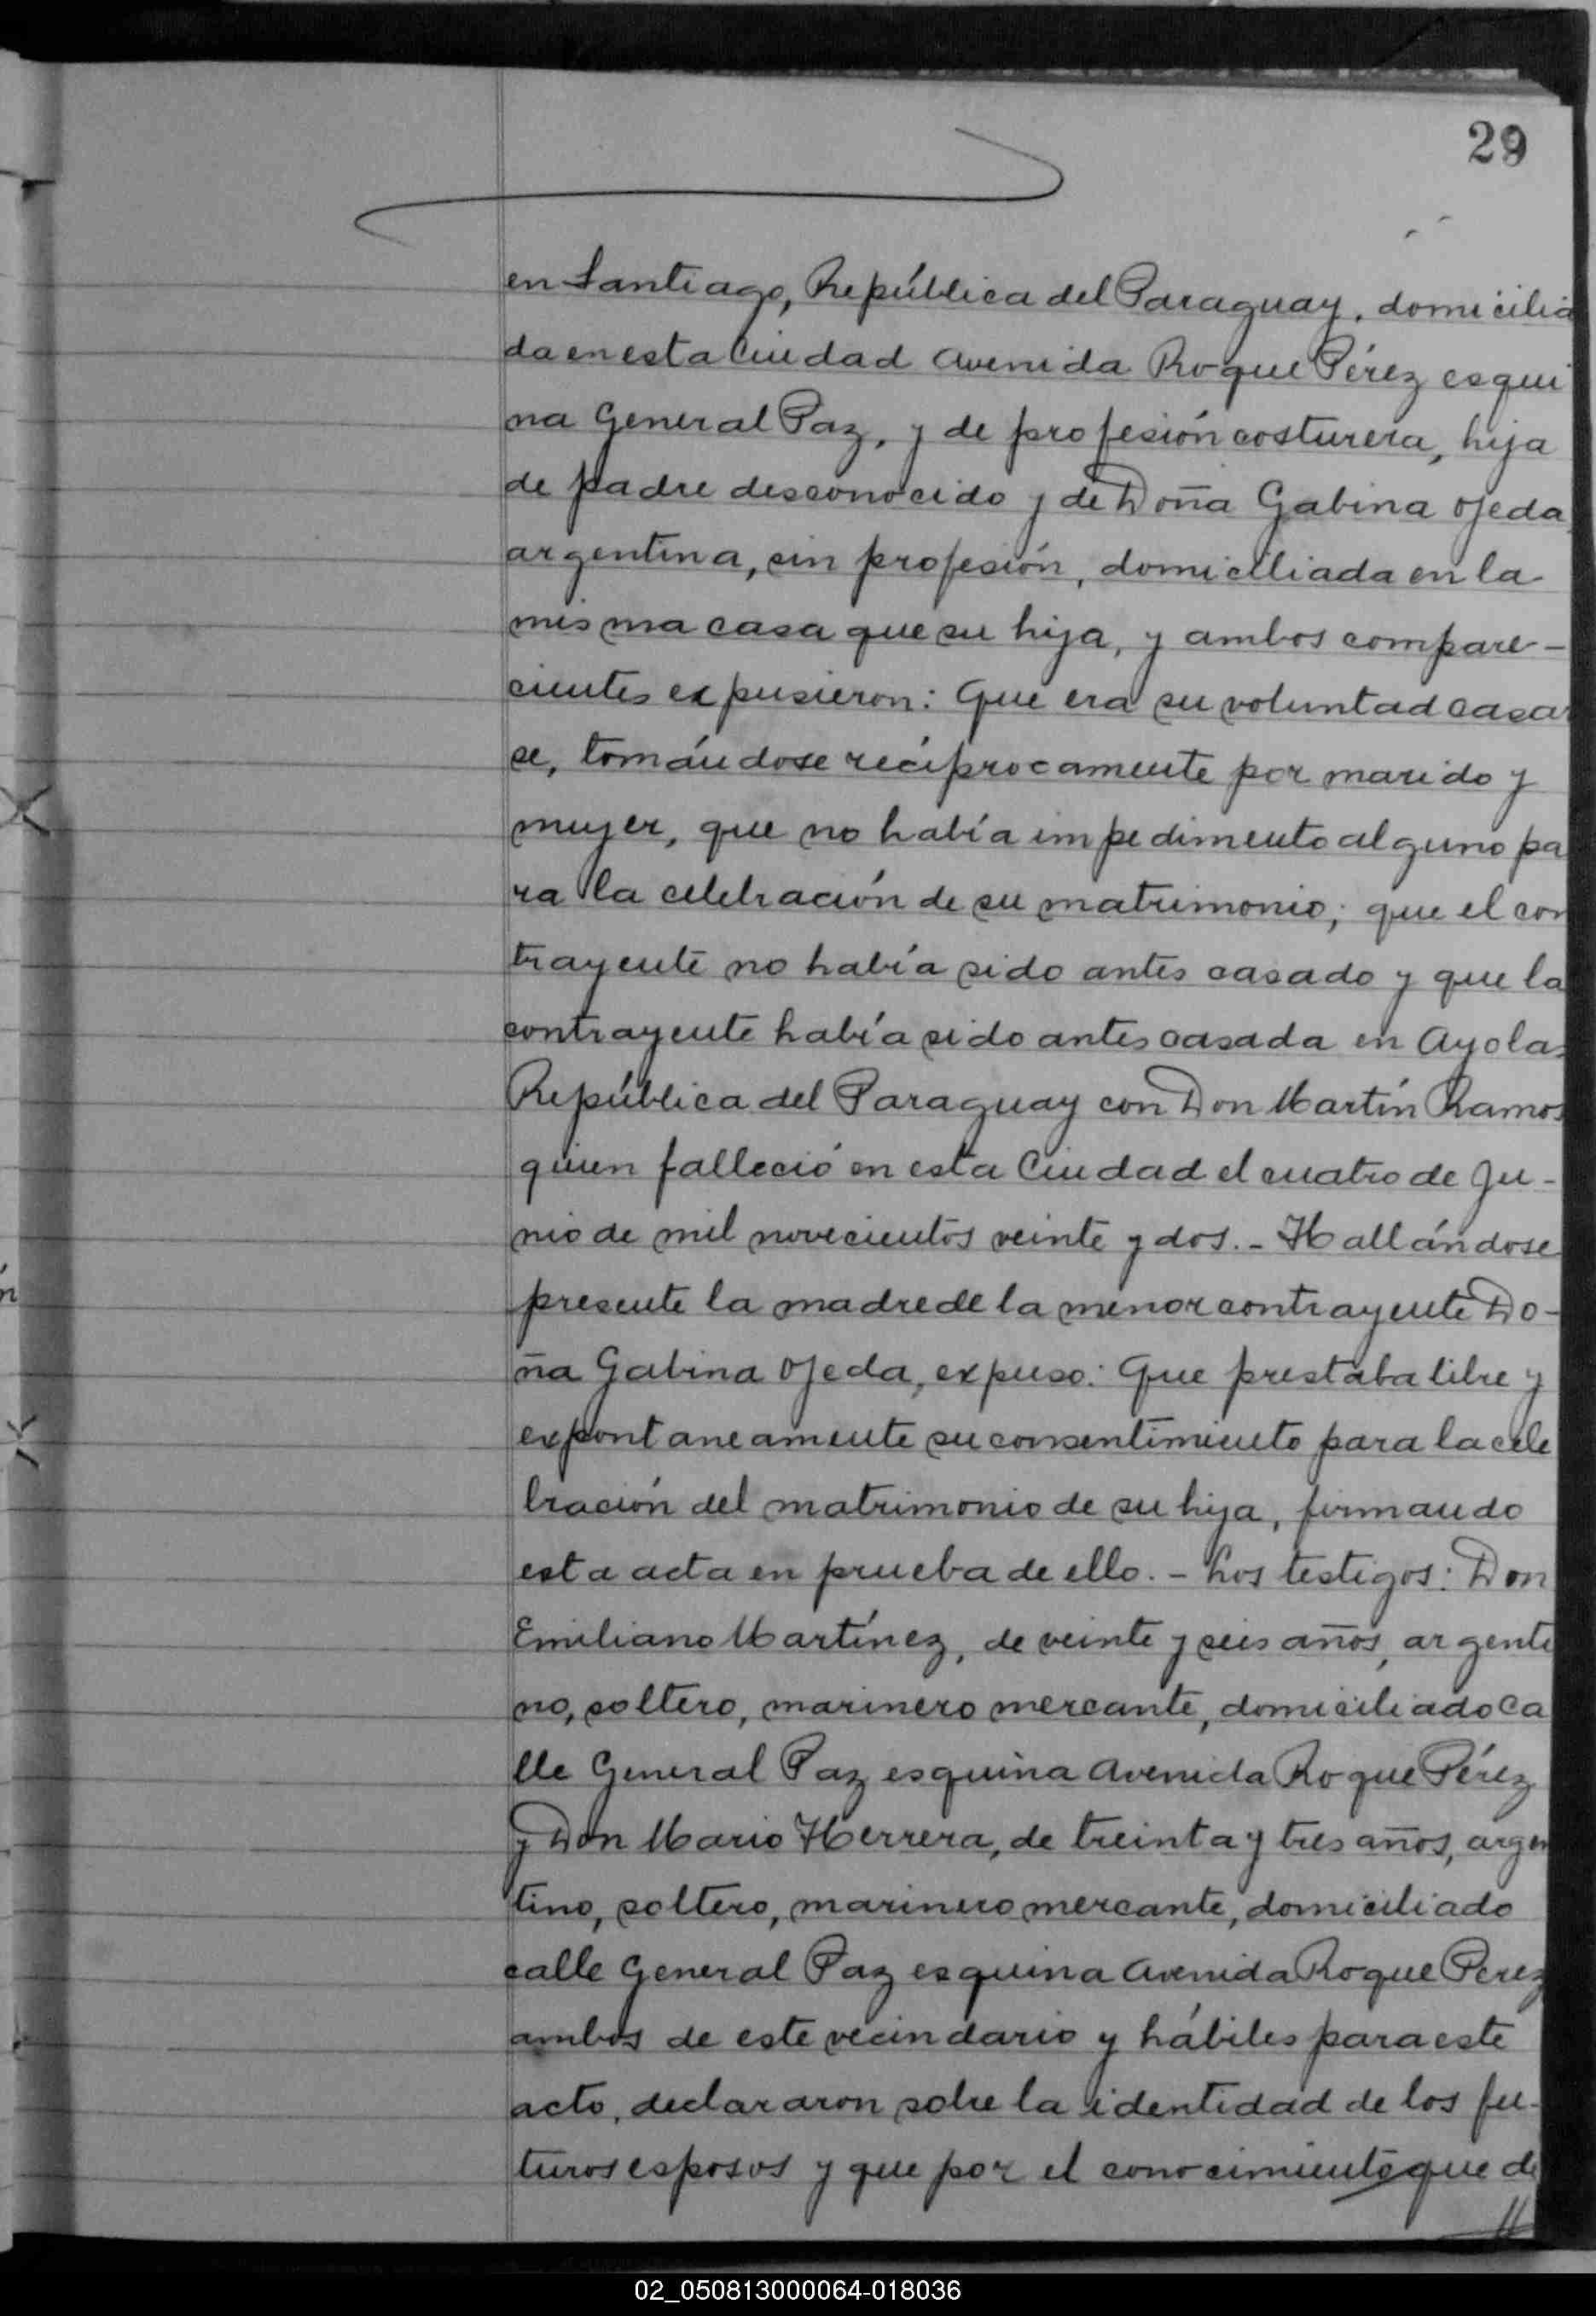 29
en Santiago, República del Paraguay, domicilia
da en esta Ciudad Avenida Roque Pérez esqui
na General Paz, y de profesión costurera, hija
de padre desconocido y de Doña Gabina Ojeda
argentina, sin profesión, domiciliada en la
misma casa que su hija, y ambos compare-
cientes expusieron: Que era su voluntad casar
se, tomándose recíprocamente por marido y
mujer, que no había impedimento alguno pa
ra la celebración de su matrimonio; que el con
trayente no había sido antes casado y que la
contrayente había sido antes casada en Ayolas
República del Paraguay con Don Martín Ramos
quien falleció en esta Ciudad el cuatro de Ju-
nio de mil novecientos veinte y dos.- Hallándose
presente la madre de la menor contrayente Do-
ña Gabina Ojeda, expuso: Que prestaba libre y
expontaneamente su consentimiento para la cele
bración del matrimonio de su hija, firmando
esta acta en prueba de ello.- Los testigos: Don
Emiliano Martínez, de veinte y seis años, argenti
no, soltero, marinero mercante, domiciliado ca
lle General Paz esquina Avenida Roque Pérez
y Don Mario Herrera, de treinta y tres años, argen
tino, soltero, marinero mercante, domiciliado
calle General Paz esquina Avenida Roque Perez
ambos de este vecindario y hábiles para este
acto, declararon sobre la identidad de los fu-
turos esposos y que por el conocimiento que de
//
02_050813000064-018036